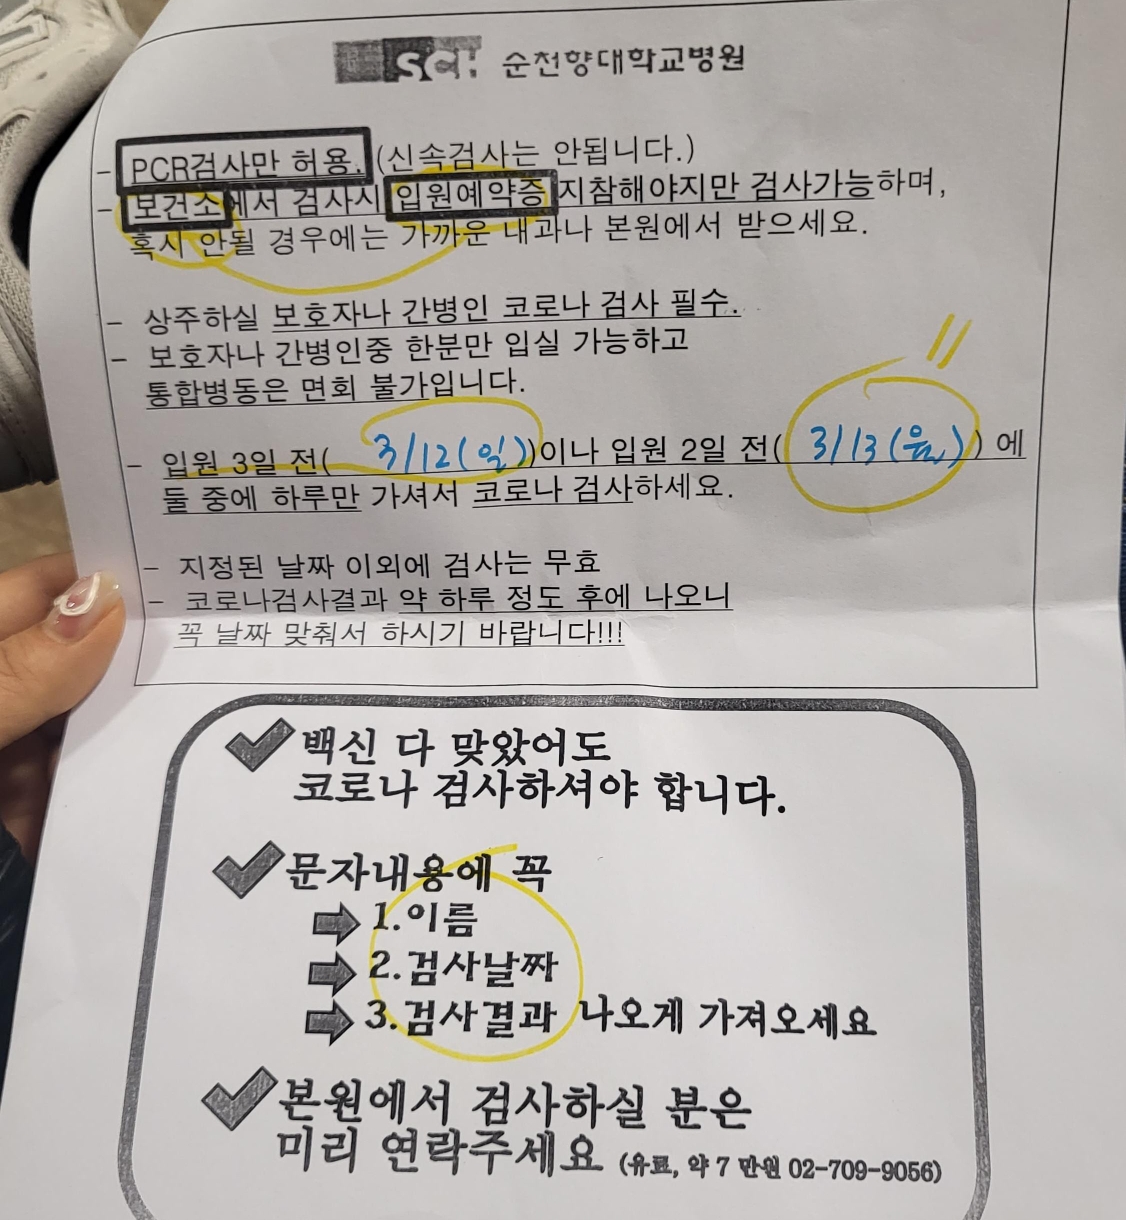 SCH 순천향대학교병원
- PCR검사만 허용. (신속검사는 안됩니다.)
- 보건소에서 검사시 입원예약증 지참해야지만 검사가능하며,
혹시 안될 경우에는 가까운 내과나 본원에서 받으세요.
- 상주하실 보호자나 간병인 코로나 검사 필수.
- 보호자나 간병인중 한분만 입실 가능하고
통합병동은 면회 불가입니다.
- 입원 3일 전( 3/12(일) )이나 입원 2일 전( 3/13(월) ) 에
둘 중에 하루만 가셔서 코로나 검사하세요.
- 지정된 날짜 이외에 검사는 무효
- 코로나검사결과 약 하루 정도 후에 나오니
꼭 날짜 맞춰서 하시기 바랍니다!!!
✔백신 다 맞았어도
코로나 검사하셔야 합니다.
✔문자내용에 꼭
⇨ 1.이름
⇨ 2.검사날짜
⇨ 3.검사결과 나오게 가져오세요
✔본원에서 검사하실 분은
미리 연락주세요 (유료, 약 7 만원 02-709-9056)